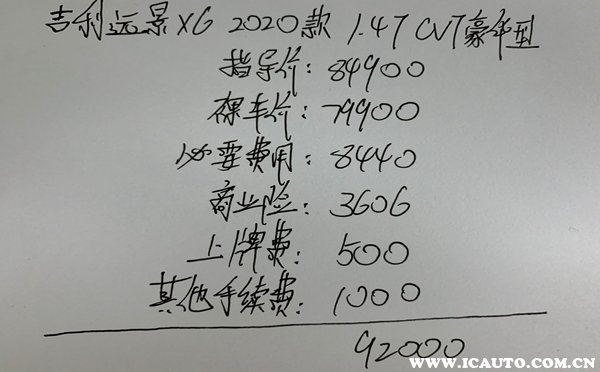 吉利远景X6 2020款 1.4T CVT豪华型
指导价: 84900
裸车价: 79900
必要费用: 8440
商业险: 3606
上牌费: 500
其他手续费: 1000
92000
WWW.ICAUTO.COM.CN